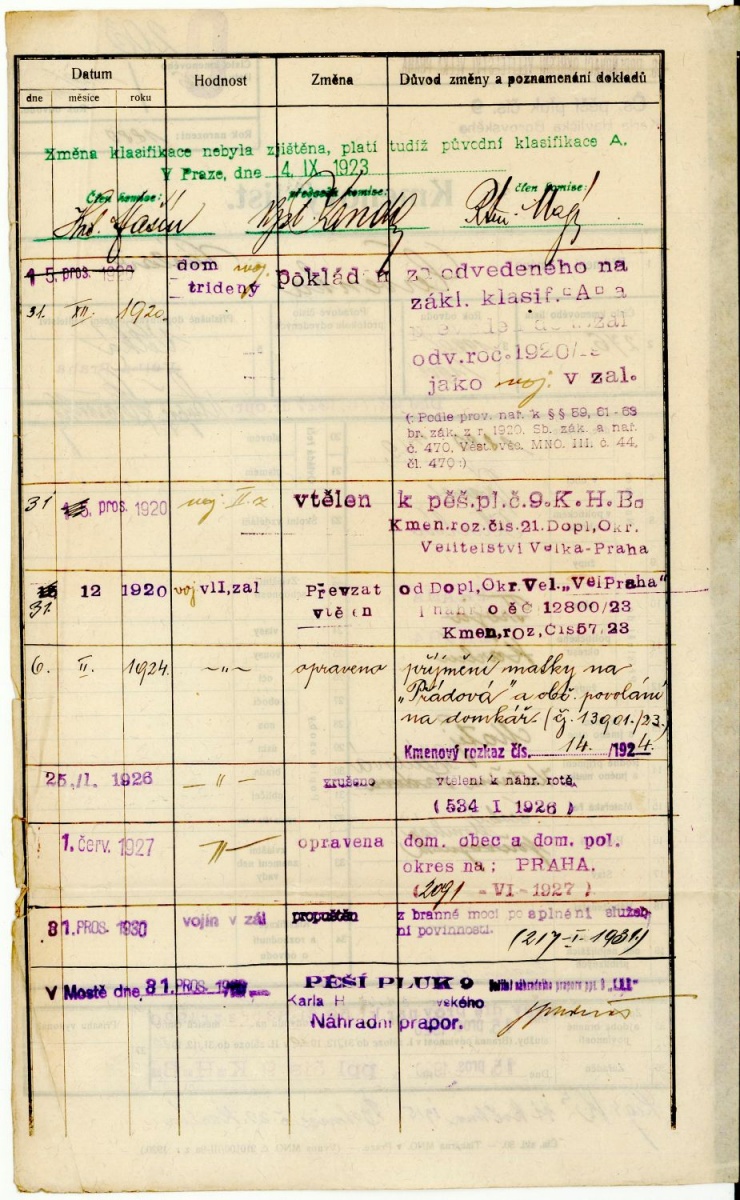 Datum
Hodnost
Změna
Důvod změny a poznamenání dokladů
dne měsíce roku
Změna klasifikace nebyla zjištěna, platí tudíž původní klasifikace A.
V Praze, dne 4. IX. 1923
Člen komise: předseda komise: člen komise:
15. pros. 1920
31. XII. 1920.
dom voj.
trideny
pokládán
za odvedeného na
zákl. klasif. "A" a
odv. roc. 1920/
jako voj. v zál.
(: Podle prov. nař. k §§ 59, 61-63
br. zák. z r. 1920. Sb. zák. a nař.
č. 470, Věst. věc. MNO. III. č. 44,
čl. 470:)
31 15. pros. 1920
voj. II. z.
vtělen
k pěš. pl. č. 9. K. H. B.
Kmen. roz. čís. 21. Dopl, Okr.
Velitelství Velka-Praha
31. 12 1920
voj v II, zal
Převzat
vtělen
od Dopl, Okr. Vel. „Vel Praha"
12800/23
Kmen, roz, Čís 57. 23
6. II. 1924.
-„-
opraveno
příjmění matky na
„Prádová" a obč. povolání
na domkář. (čj. 13901./23.)
Kmenový rozkaz čís. 14. /1924.
25. /I. 1926
-"-
zrušeno
vtělení k náhr. rotě.
(534 I 1926)
1. červ. 1927
-"-
opravena
dom. obec a dom. pol.
okres na; PRAHA.
(2091 - VI - 1927)
31. PROS. 1930
vojín v zál
propuštěn
z branné moci po splnění služeb-
ní povinnosti.
(217-I-1931)
V Mostě dne, 31. PROS.
PĚŠÍ PLUK 9
Karla H vského
Náhradní prapor.
Velitel náhradního praporu